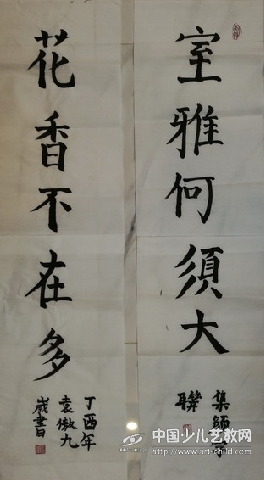 室雅何須大
集師
聯
花香不在多
丁酉年
袁傲九
歲書
中国少儿艺教网
WWW.